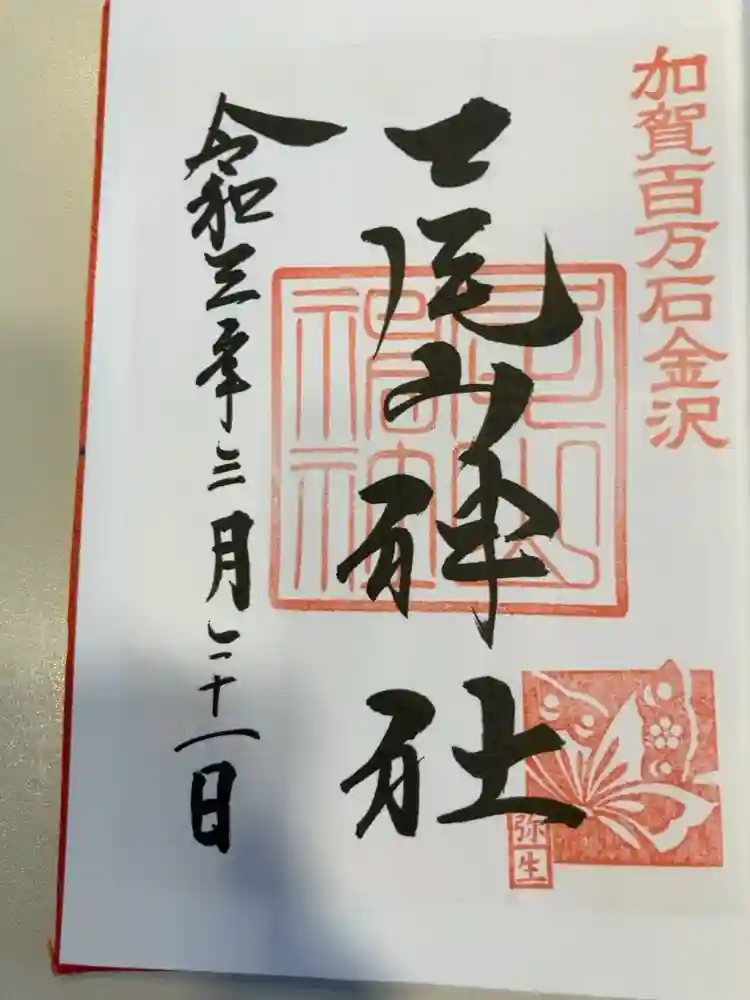 加賀百万石金沢
尾山神社
尾山神社
弥生
令和三年三月二十一日